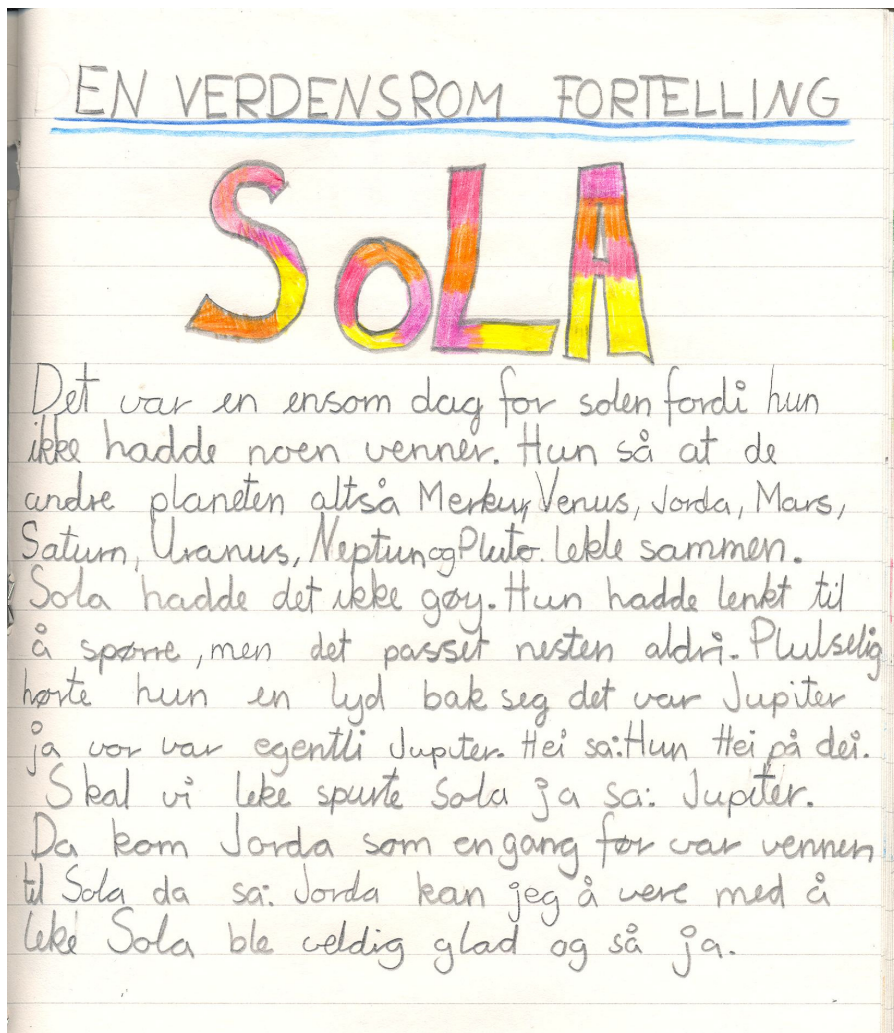 EN VERDENSROM FORTELLING
SOLA
Det var en ensom dag for solen fordi hun
ikke hadde noen venner. Hun så at de
andre planeten altså Merkur, Venus, Jorda, Mars,
Saturn, Uranus, Neptun og Pluto. lekte sammen.
Sola hadde det ikke gøy. Hun hadde tenkt til
å spørre, men det passet nesten aldri. Plutselig
hørte hun en lyd bak seg det var Jupiter
ja vor var egentli Jupiter. Hei sa: Hun Hei på dei.
Skal vi leke spurte Sola ja sa: Jupiter.
Da kom Jorda som en gang før var vennen
til Sola da sa: Jorda kan jeg å vere med å
leke Sola ble veldig glad og så ja.